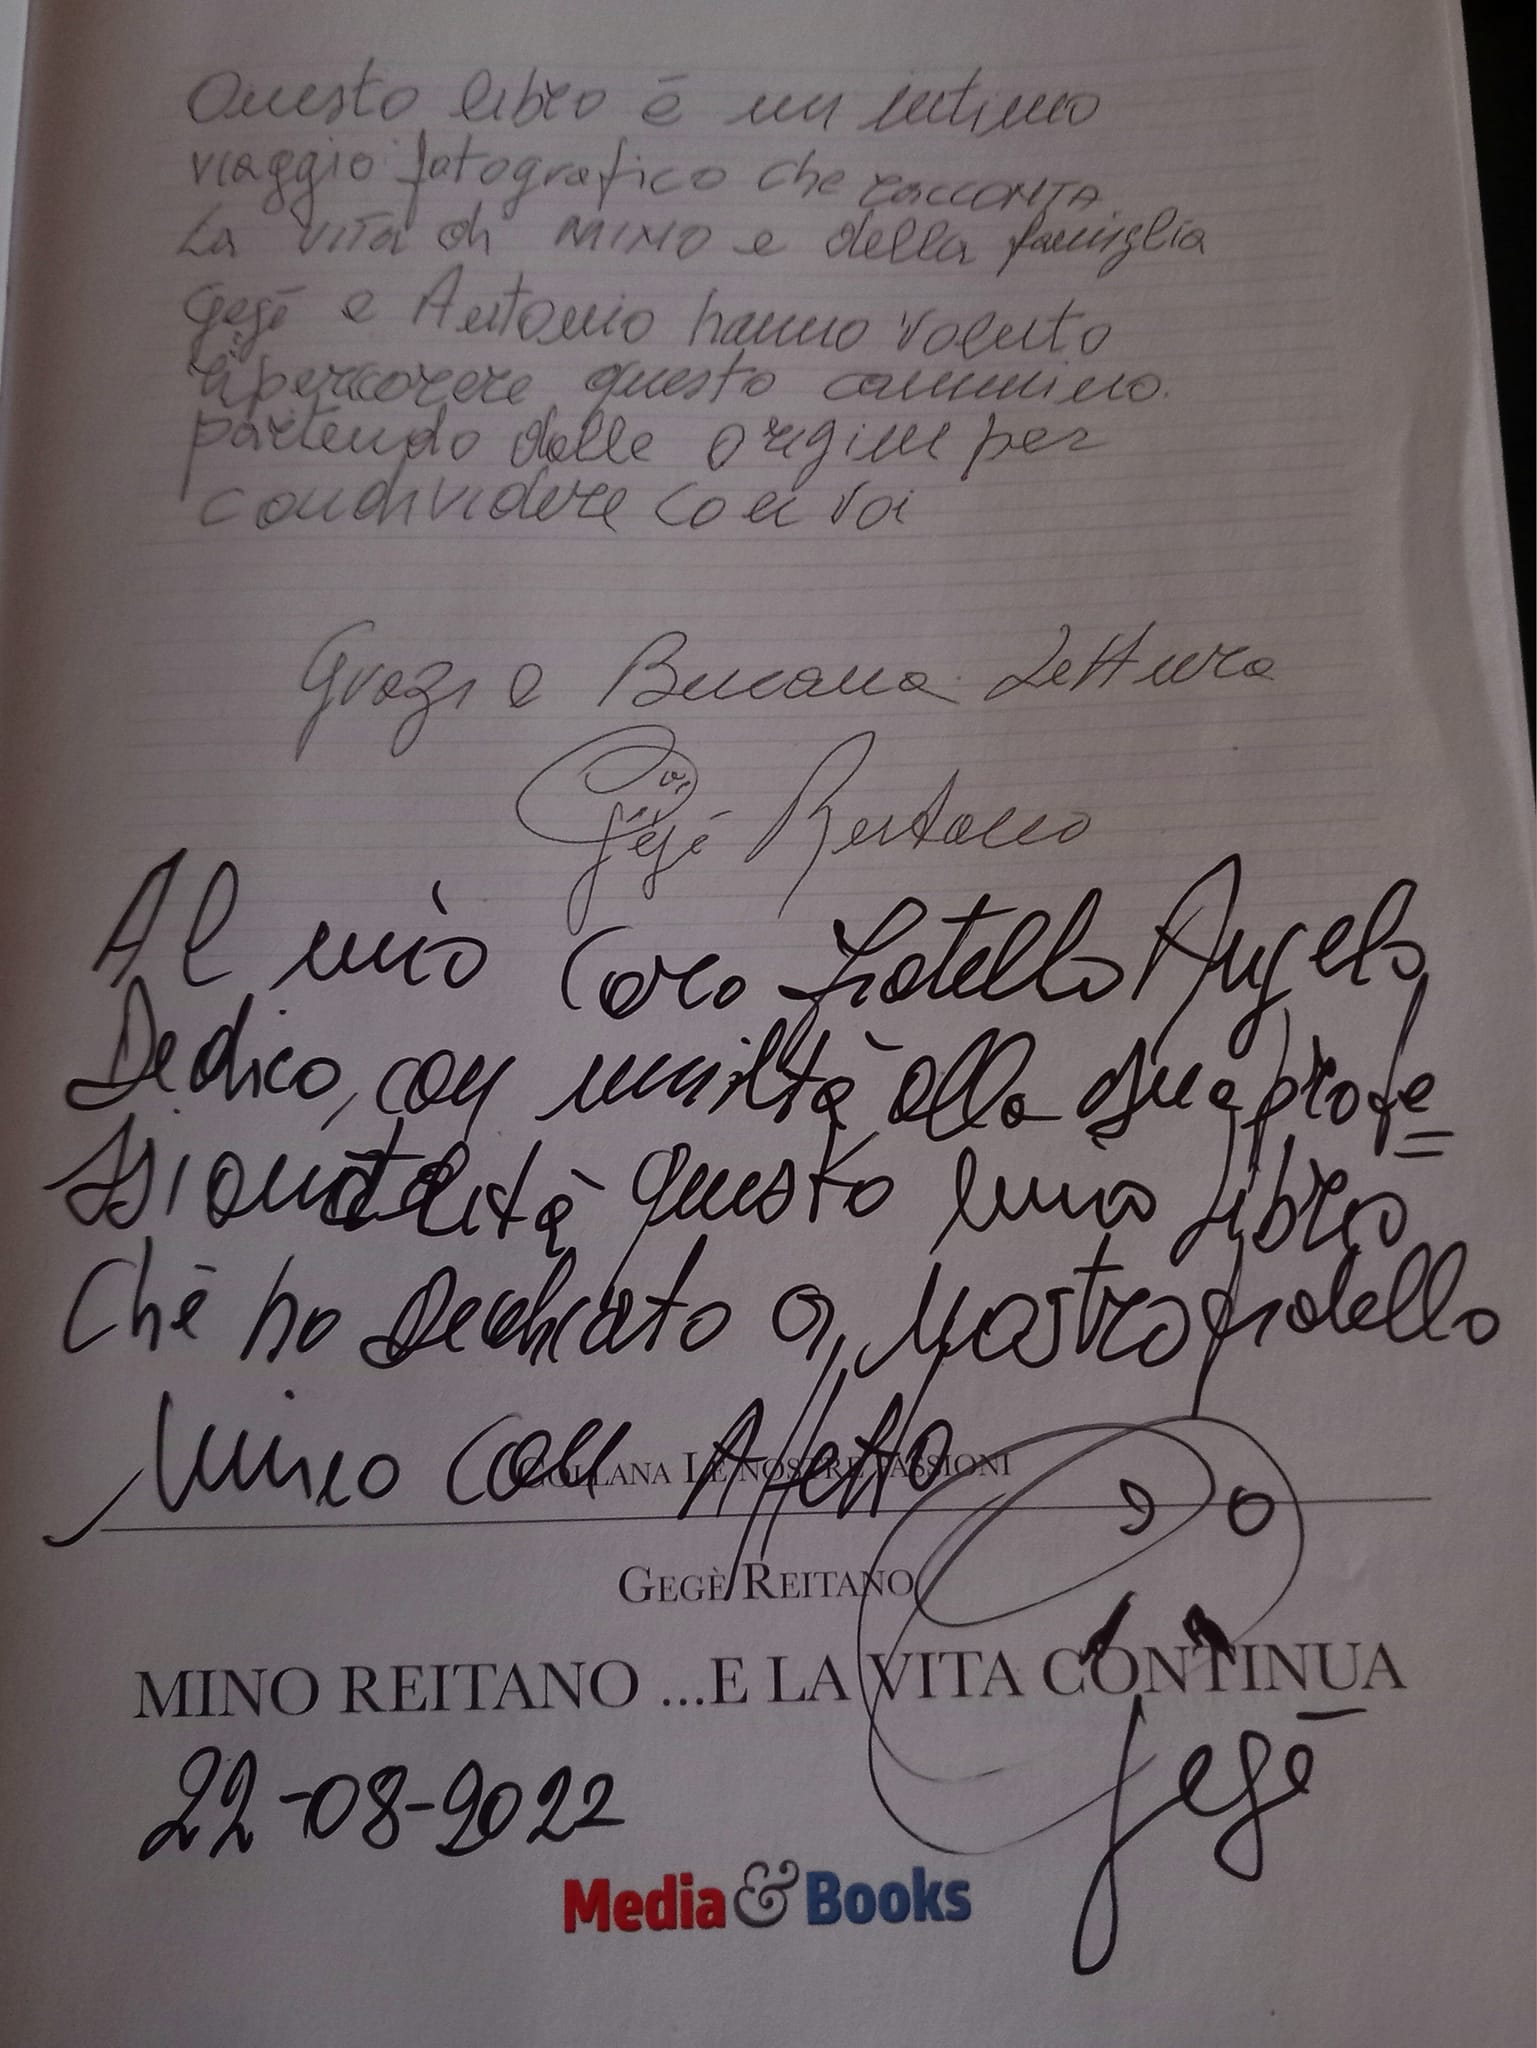 Questo libro è un intimo
viaggio fotografico che racconta
La vita di MINO e della famiglia
Gegè e Antonio hanno voluto
ripercorere questo cammino.
partendo dalle origini per
condividere con voi
Grazie Buona Lettura
Gegè Reitano
Al mio caro fratello Angelo
Dedico, con umiltà alla sua profe=
ssionalità questo mio libro
Che ho Dedicato a nostro fratello
Mino con Affetto
COLLANA LE NOSTRE PASSIONI
GEGÈ REITANO
MINO REITANO ...E LA VITA CONTINUA
Gegè
22-08-2022
Media & Books